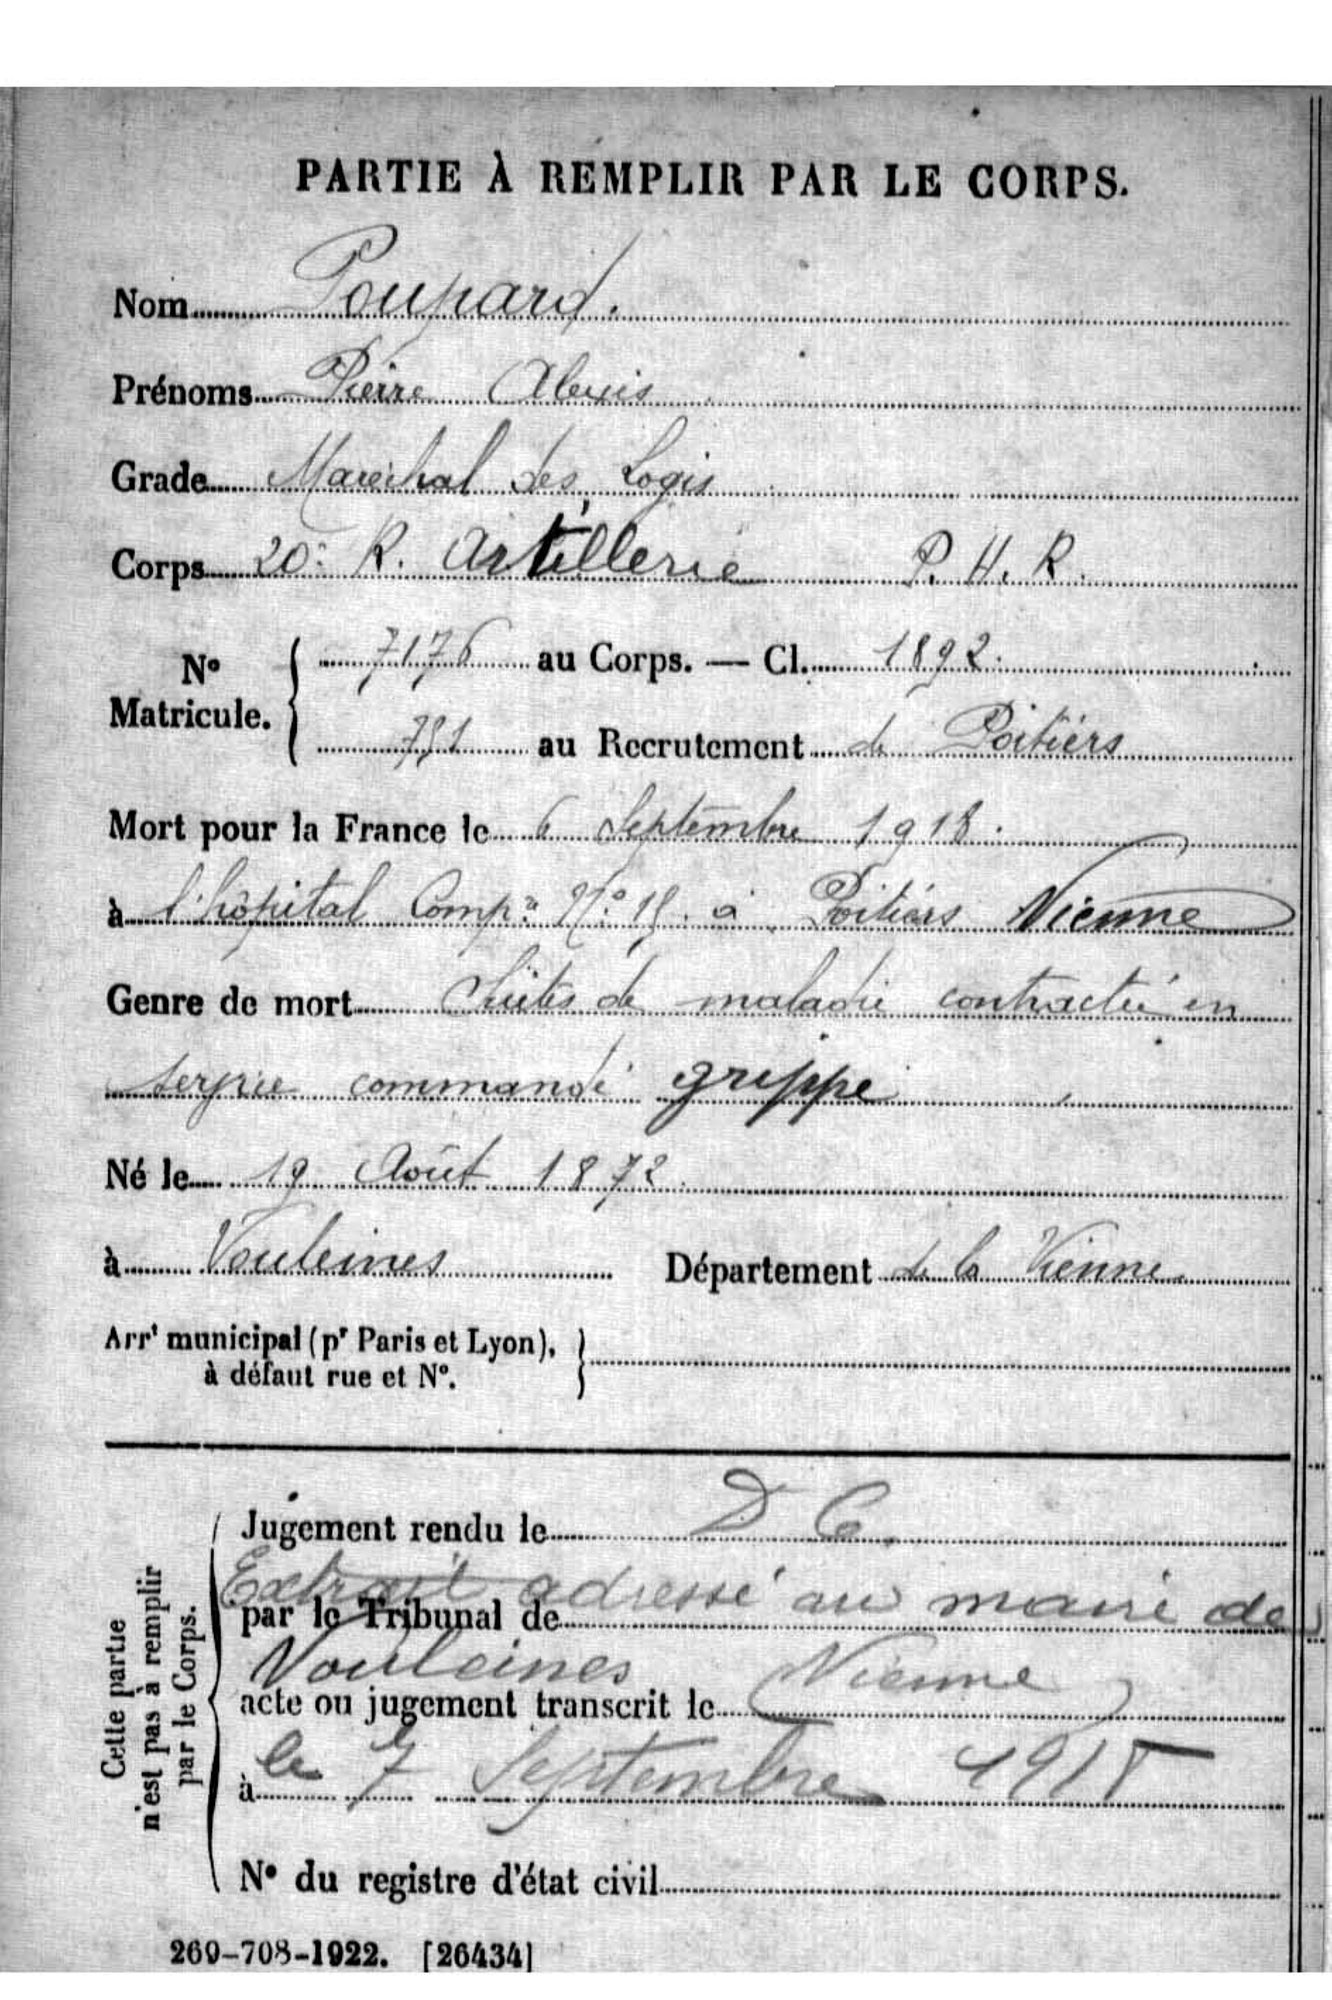 PARTIE À REMPLIR PAR LE CORPS.
Nom Poupard.
Prénoms Pierre Alexis
Grade Maréchal des Logis
Corps 20e R. Artillerie P. H. R.
No Matricule. 7176 au Corps. — Cl. 1892.
731 au Recrutement de Poitiers
Mort pour la France le 6 Septembre 1918.
à l'hôpital Compre No à Poitiers Vienne
Genre de mort Suites de maladie contractée en
service commandé grippe
Né le 19 Août 1872
à Vouleines Département de la Vienne
Arrt municipal (pr Paris et Lyon),
à défaut rue et No.
Cette partie
n'est pas à remplir
par le Corps.
Jugement rendu le D C.
Extrait adressé au maire de
par le Tribunal de
Vouleines (Vienne)
acte ou jugement transcrit le
à le 7 Septembre 1918
No du registre d'état civil
269-708-1922. [26434]